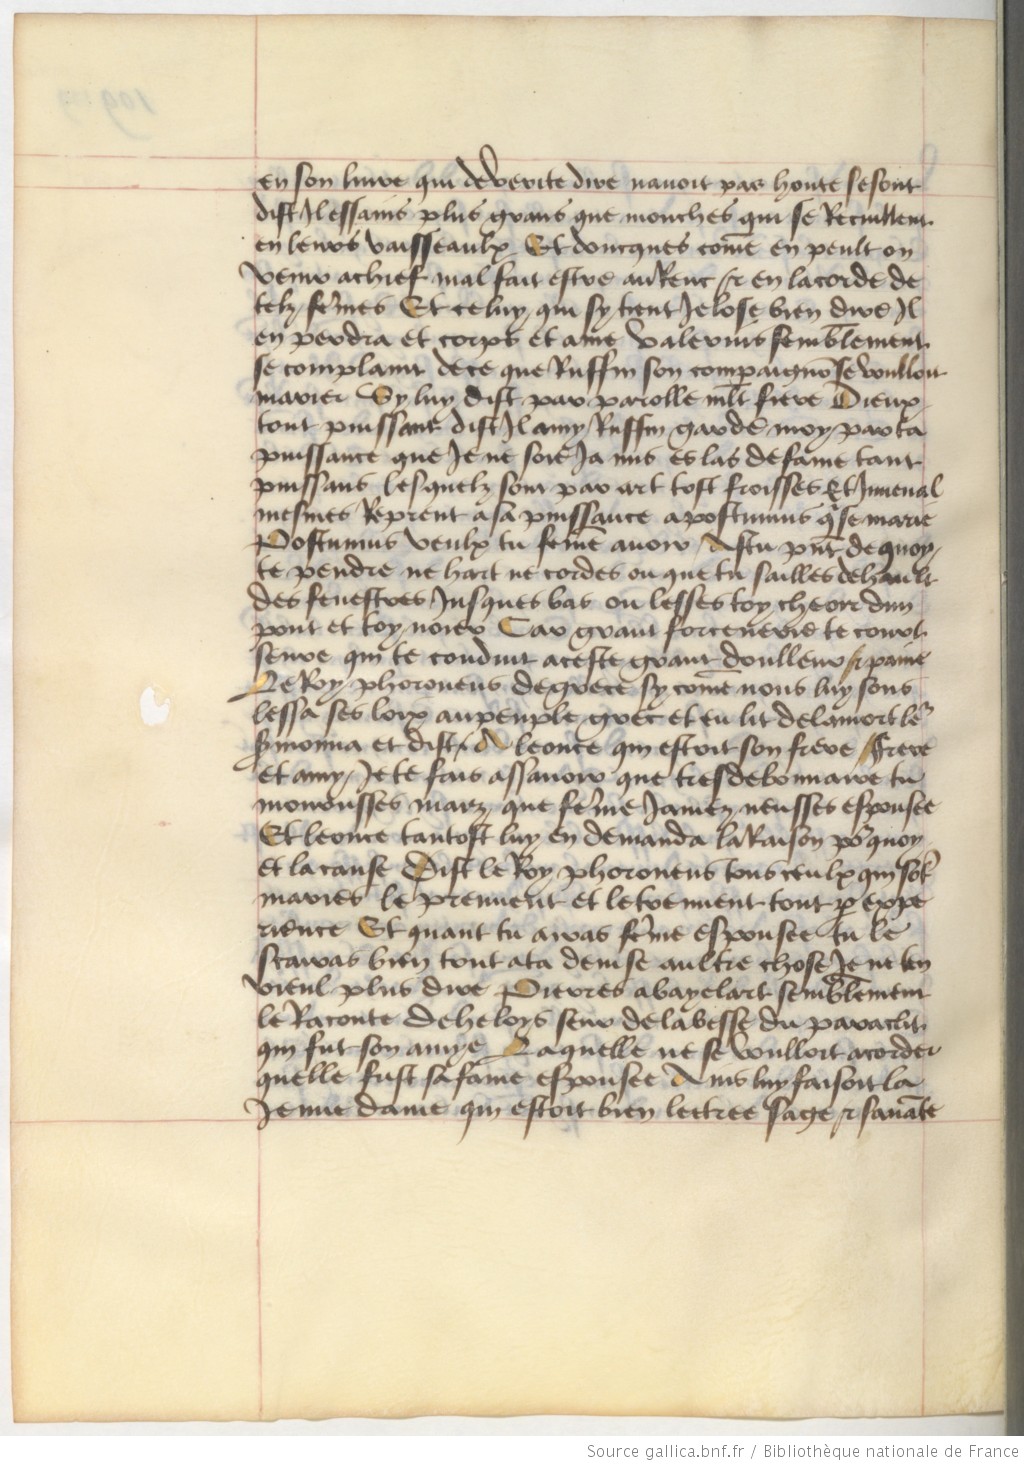 en son livre qui de verite dire navoit pas honte se sont
dist Il essains plus grans que mouches qui se Recuillent
en leurs vaisseaulx Et doncques cōme en peult on
venir a chief mal fait estre au Renc & en lacorde de
telz fēmes Et celuy qui sy tient Je lose bien dire Il
en perdra et corps et ame Valerius semblement
se complaint de ce que Ruffin son compaignō se voulloit
marier Sy luy dist par parolle mlt fiere Dieux
tout puissant dist Il amy Ruffin garde moy par ta
puissance que Je ne soie Ja mis es las de fame tant
puissans lesquelz sont par art tost froisses Et Juvenal
mesmes Reprent a sa puissance a postumus q̄ se marie
Postumus veulx tu fēme avoir Astu p̄nt de quoy
te pendre ne hart ne cordes ou que tu sailles de hault
des fenestres Jusques bas ou lesses toy cheoir dun
pont et toy noier Car grant forcenerie te court
seure qui te conduit a ceste grant doulleur & paine
Le Roy phoroneus de grece sy cōme nous luy sons
lessa ses loix au peuple grec et eu lit de la mort le
sermonna et dist A leonce qui estoit son frere Frere
et amy Je te fais assavoir que tresdebonnaire tu
moreusses marz que fēme Jamez neusses espousee
Et leonce tantost luy en demanda la Raison po'quoy
et la cause Dist le Roy phoroneus tous ceulx qui sōt
maries le preuvent et le tiennent tout p expe
rience Et quant tu auras fēme espousee tu le
scauras bien tout a ta devise aultre chose Je ne ten
vieul plus dire Pierres abayelart semblement
le Raconte de heloys seur de labesse du paraclit
qui fut son amye Laquelle ne se voulloit acorder
quelle fust sa fame espousee Ains luy faisoit la
Jenne dame qui estoit bien lettree sage & savāte
Source gallica.bnf.fr / Bibliothèque nationale de France